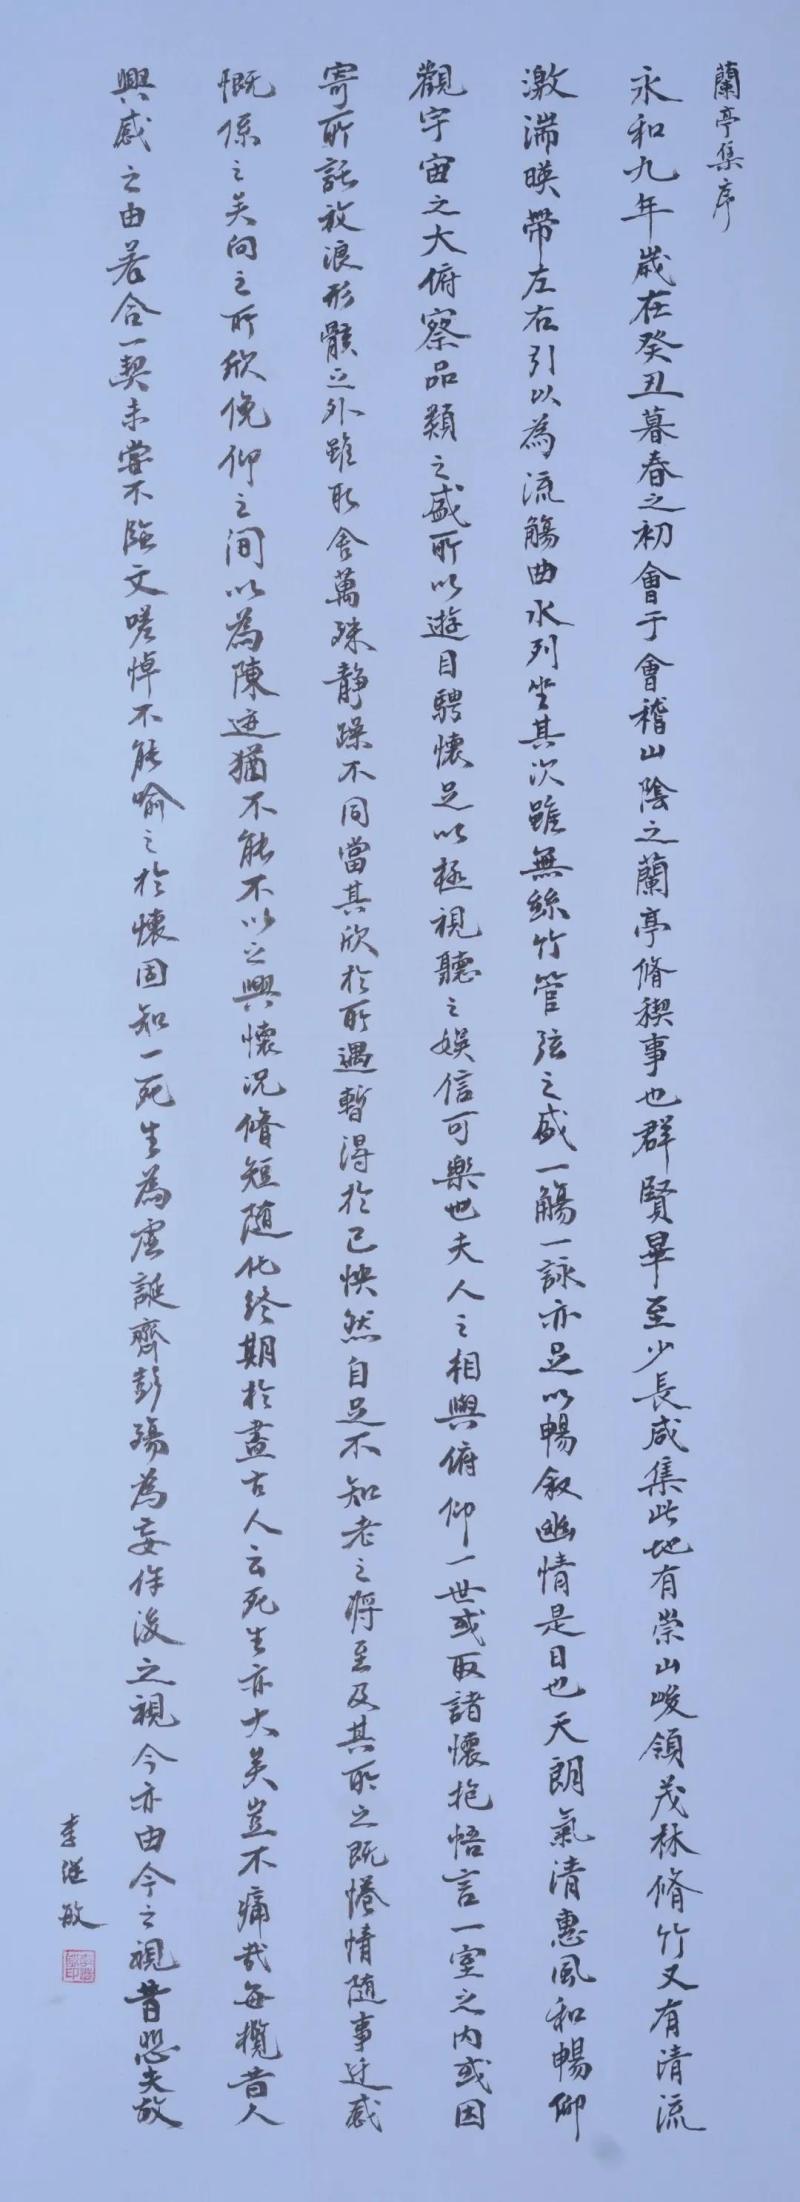 蘭亭集序
永和九年歲在癸丑暮春之初會于會稽山陰之蘭亭脩稧事也群賢畢至少長咸集此地有崇山峻領茂林脩竹又有清流
激湍暎帶左右引以為流觴曲水列坐其次雖無絲竹管弦之盛一觴一詠亦足以暢叙幽情是日也天朗氣清惠風和暢仰
觀宇宙之大俯察品類之盛所以遊目騁懷足以極視聽之娛信可樂也夫人之相與俯仰一世或取諸懷抱悟言一室之內或因
寄所託放浪形骸之外雖取舍萬殊靜躁不同當其欣於所遇暫得於己怏然自足不知老之將至及其所之既惓情隨事迁感
慨係之矣向之所欣俛仰之間以為陳迹猶不能不以之興懷況脩短随化終期於盡古人云死生亦大矣豈不痛哉每攬昔人
興感之由若合一契未嘗不臨文嗟悼不能喻之於懷固知一死生為虛誕齊彭殤為妄作後之視今亦由今之視昔悲夫故
李繼敏